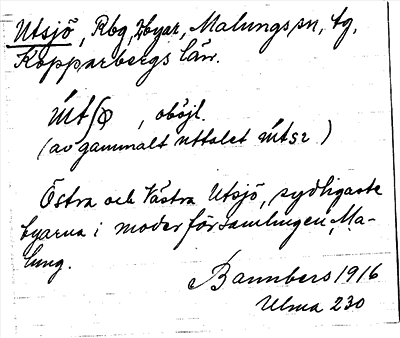 Utsjö, Rbg, 2 byar, Malungs sn, tg,
Kopparbergs län.
útʃὼ, oböjl.
(av gammalt uttalet
Östra och Västra Utsjö, sydligaste
byarna i moderförsamlingen, Ma-
lung.
Bannbers 1916
Ulma 230